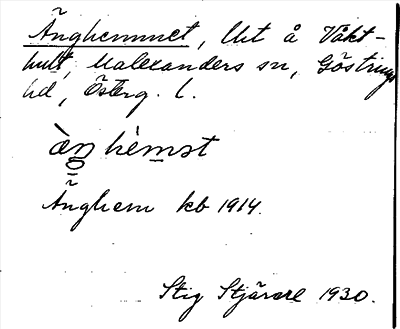 Änghemmet, lht å Våkt-
hult, Malexanders sn, Göstrings
hd, Österg. l.
ὰŋ hèmət
Änghem kb 1914.
Stig Stjärne 1930.